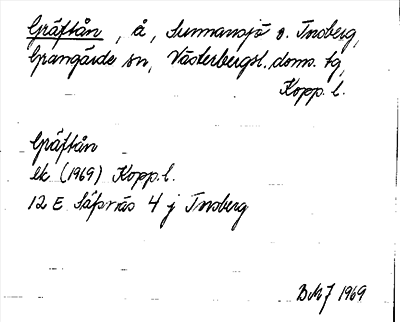 Gräftån, å, Sunnansjö o. Tnsberg,
Grangärde sn, Västerbergsl. doms. tg,
Kopp. l.
Gräftån
ek (1969) Kopp. l.
12 E Säfsnäs 4 j Tnsberg
BMJ 1969